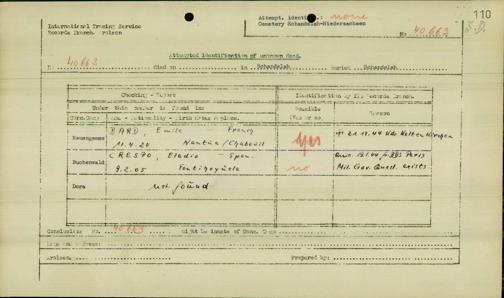 110
International Tracing Service
Records Branch. Arolsen
Attempt. identif.: none
Cemetery Schandelah-Niedersachsen
No 40.663
B.D.
Attempted identification of unknown dead.
No 40663 died on in Schandelah buried Schandelah
Checking - Report
Identification by ITS Records Branch.
Under this number is found in:
Possible
Conc.Camp: Name - Nationality - Birth date & place.
Yes or no
Reason
Neuengamme
BARD, Emile French
11.4.20 Nantua/Chaboud
yes
+ 21.11.44 Kdo Kaltenkirchen
Buchenwald
CRESPO, Eladio - Span.
9.2.05
no
Paris
Mil. Gov. Quest. exists
Dora
not found
Conclusion: No. 40663 might be inmate of Conc. Camp
Arolsen
Prepared by: